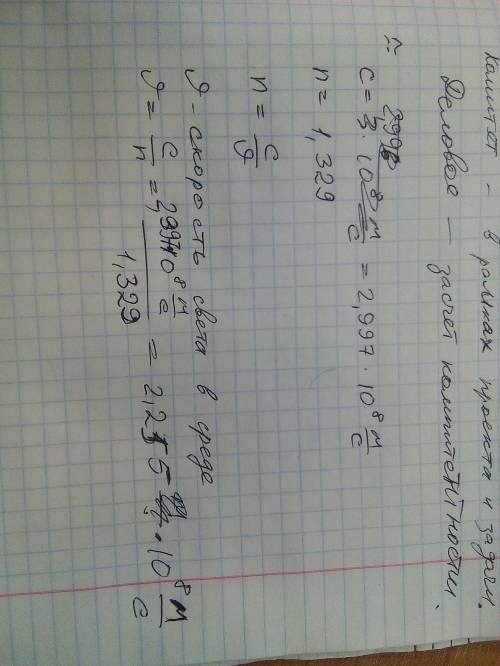 комитет - в рамках проекта и задачи.
Деловое — засчет компитентности.
≈ c = 3 · 10⁸ м/с = 2,997 · 10⁸ м/с
n = 1,329
n = c/υ
υ - скорость света в среде
υ = c/n = 2,997·10⁸ м/с / 1,329 = 2,255 · 10⁸ м/с